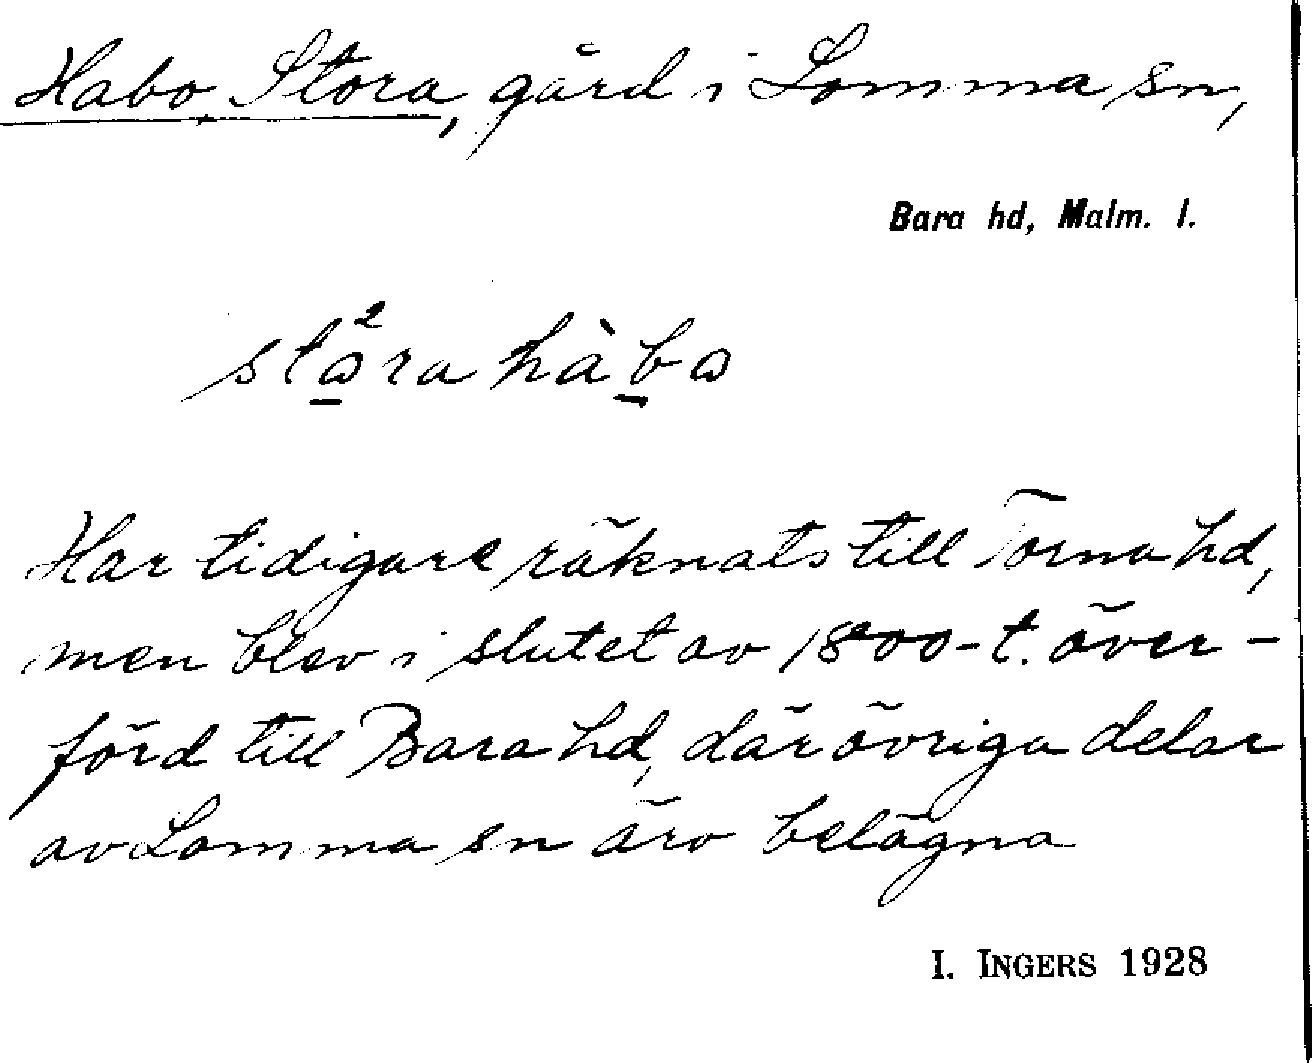 Habo, Stora, gård i Lomma sn,
Bara hd, Malm. l.
sto̲²ra hàb̲o
Har tidigare räknats till Torna hd,
men blev i slutet av 1800-t. över-
förd till Bara hd, där övriga delar
av Lomma sn äro belägna
I. INGERS 1928